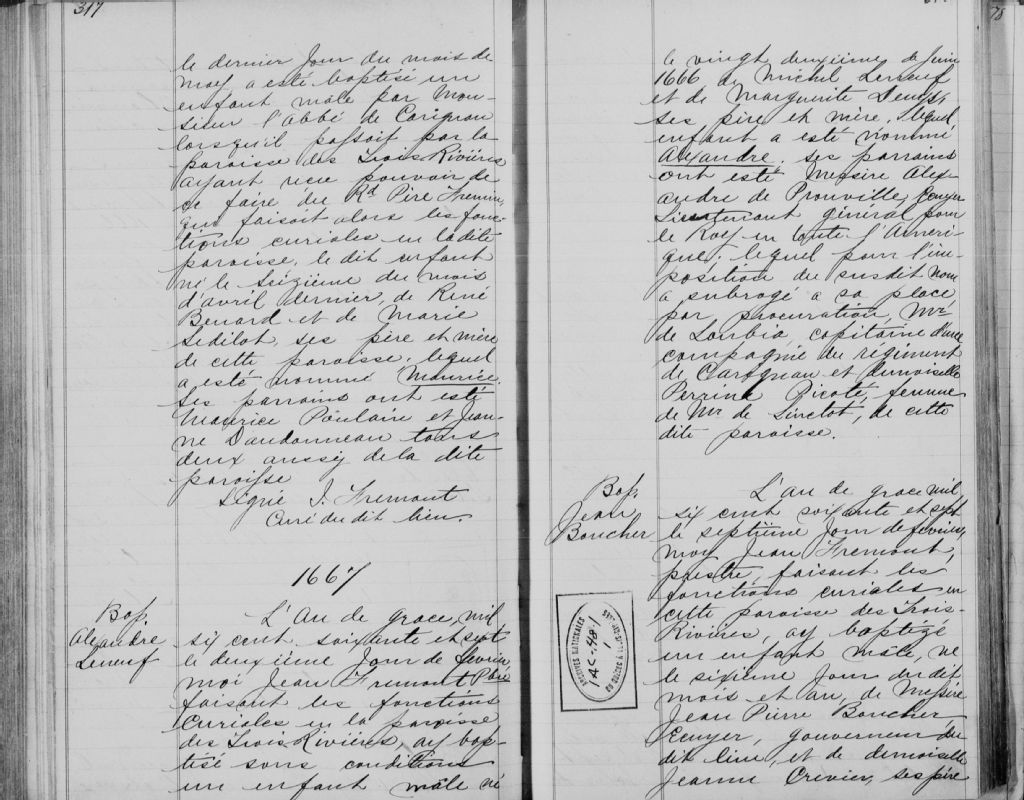 317
le dernier Jour du mois de
may a esté baptisé un
enfant mâle par Mon-
sieur l'abbé de Carignan
lorsqu'il passoit par la
paroisse des Trois Rivières
ayant receu pouvoir de
ce faire du Rd Père Fremin,
qui faisoit alors les fonc-
tions curiales en la dite
paroisse, le dit enfant
né le seizième du mois
d'avril dernier, de René
Benard et de Marie
Sedilot, ses père et mère
de cette paroisse, lequel
a esté nommé Maurice.
ses parrains ont esté
Maurice Poulain et Jean-
ne Dandonneau tous
deux aussy de la dite
paroisse
Signé J. Fremont
Curé du dit lieu.
1667
Bap.
Alexandre
Leneuf
L'An de grace, mil
six cent soixante et sept
le deuxième Jour de fevrier,
moi Jean Fremont Pbre
faisant les fonctions
curiales en la paroisse
des Trois Rivières, ay bap-
tisé sous conditions
un enfant mâle né
78
le vingt deuxième de Juin
1666 de Michel Leneuf
et de Marguerite
ses père et mère, lequel
enfant a esté nommé
Alexandre, ses parrains
ont esté Messire Alex-
andre de Prouville, Ecuyer
Lieutenant général pour
le Roy en toute l'Ameri-
que; lequel pour l'im-
position du susdit nom
a subrogé a sa place
par procuration, Mr
de Loubia, capitaine d'une
compagnie du régiment
de Carignan et demoiselle
Perrine Picoté, femme
de Mr de Sirctot, de cette
dite paroisse.
Bap.
Jean
Boucher
L'an de grace mil
six cent soixante et sept
le septième Jour de fevrier,
moy Jean Fremont,
prestre, faisant les
fonctions curiales en
cette paroisse des Trois-
Rivières, ay baptizé
un enfant mâle, né
le sixième Jour du dit
mois et an, de Messire
Jean Pierre Boucher,
Ecuyer, gouverneur du
dit lieu, et de demoiselle
Jeanne Crevier, ses père
ARCHIVES NATIONALES